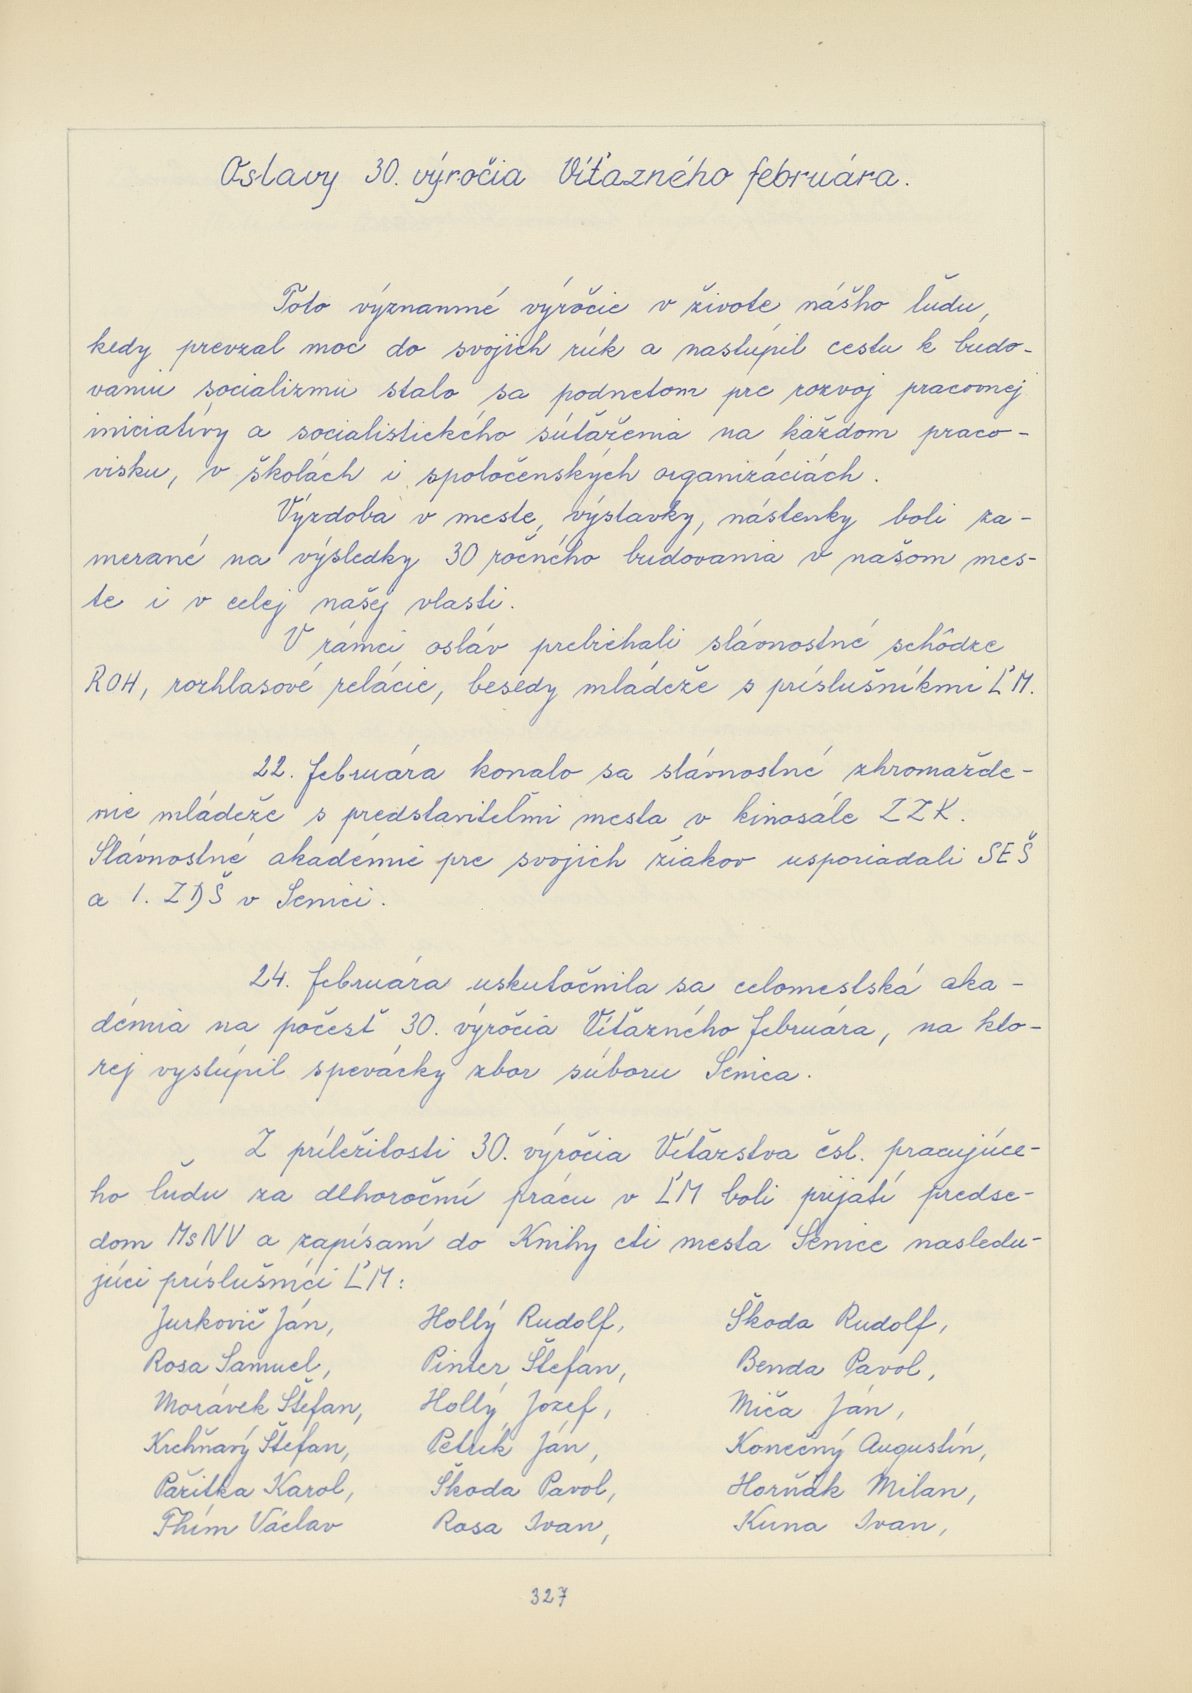 Oslavy 30. výročia Víťazného februára.
Toto významné výročie v živote nášho ľudu,
kedy prevzal moc do svojich rúk a nastúpil cestu k budo-
vaniu socializmu stalo sa podnetom pre rozvoj pracovnej
iniciatívy a socialistického súťaženia na každom praco-
visku, v školách i spoločenských organizáciách.
Výzdoba v meste, výstavky, nástenky boli za-
merané na výsledky 30 ročného budovania v našom mes-
te i v celej našej vlasti.
V rámci osláv prebiehali slávnostné schôdze
ROH, rozhlasové relácie, besedy mládeže s príslušníkmi ĽM.
22. februára konalo sa slávnostné zhromažde-
nie mládeže s predstaviteľmi mesta v kinosále ZZK.
Slávnostné akadémie pre svojich žiakov usporiadali SEŠ
a 1. ZDŠ v Senici.
24. februára uskutočnila sa celomestská aka-
démia na počesť 30. výročia Víťazného februára, na kto-
rej vystúpil spevácky zbor súboru Senica.
Z príležitosti 30. výročia Víťazstva čsl. pracujúce-
ho ľudu za dlhoročnú prácu v ĽM boli prijatí predse-
dom MsNV a zapísaní do Knihy cti mesta Senice nasledu-
júci príslušníci ĽM:
Jurkovič Ján, Hollý Rudolf, Škoda Rudolf,
Rosa Samuel, Pinter Štefan, Benda Pavol,
Morávek Štefan, Hollý Jozef, Miča Ján,
Krchňavý Štefan, Petrík Ján, Konečný Augustín,
Pažitka Karol, Škoda Pavol, Horňák Milan,
Thim Václav Rosa Ivan, Kuna Ivan,
327